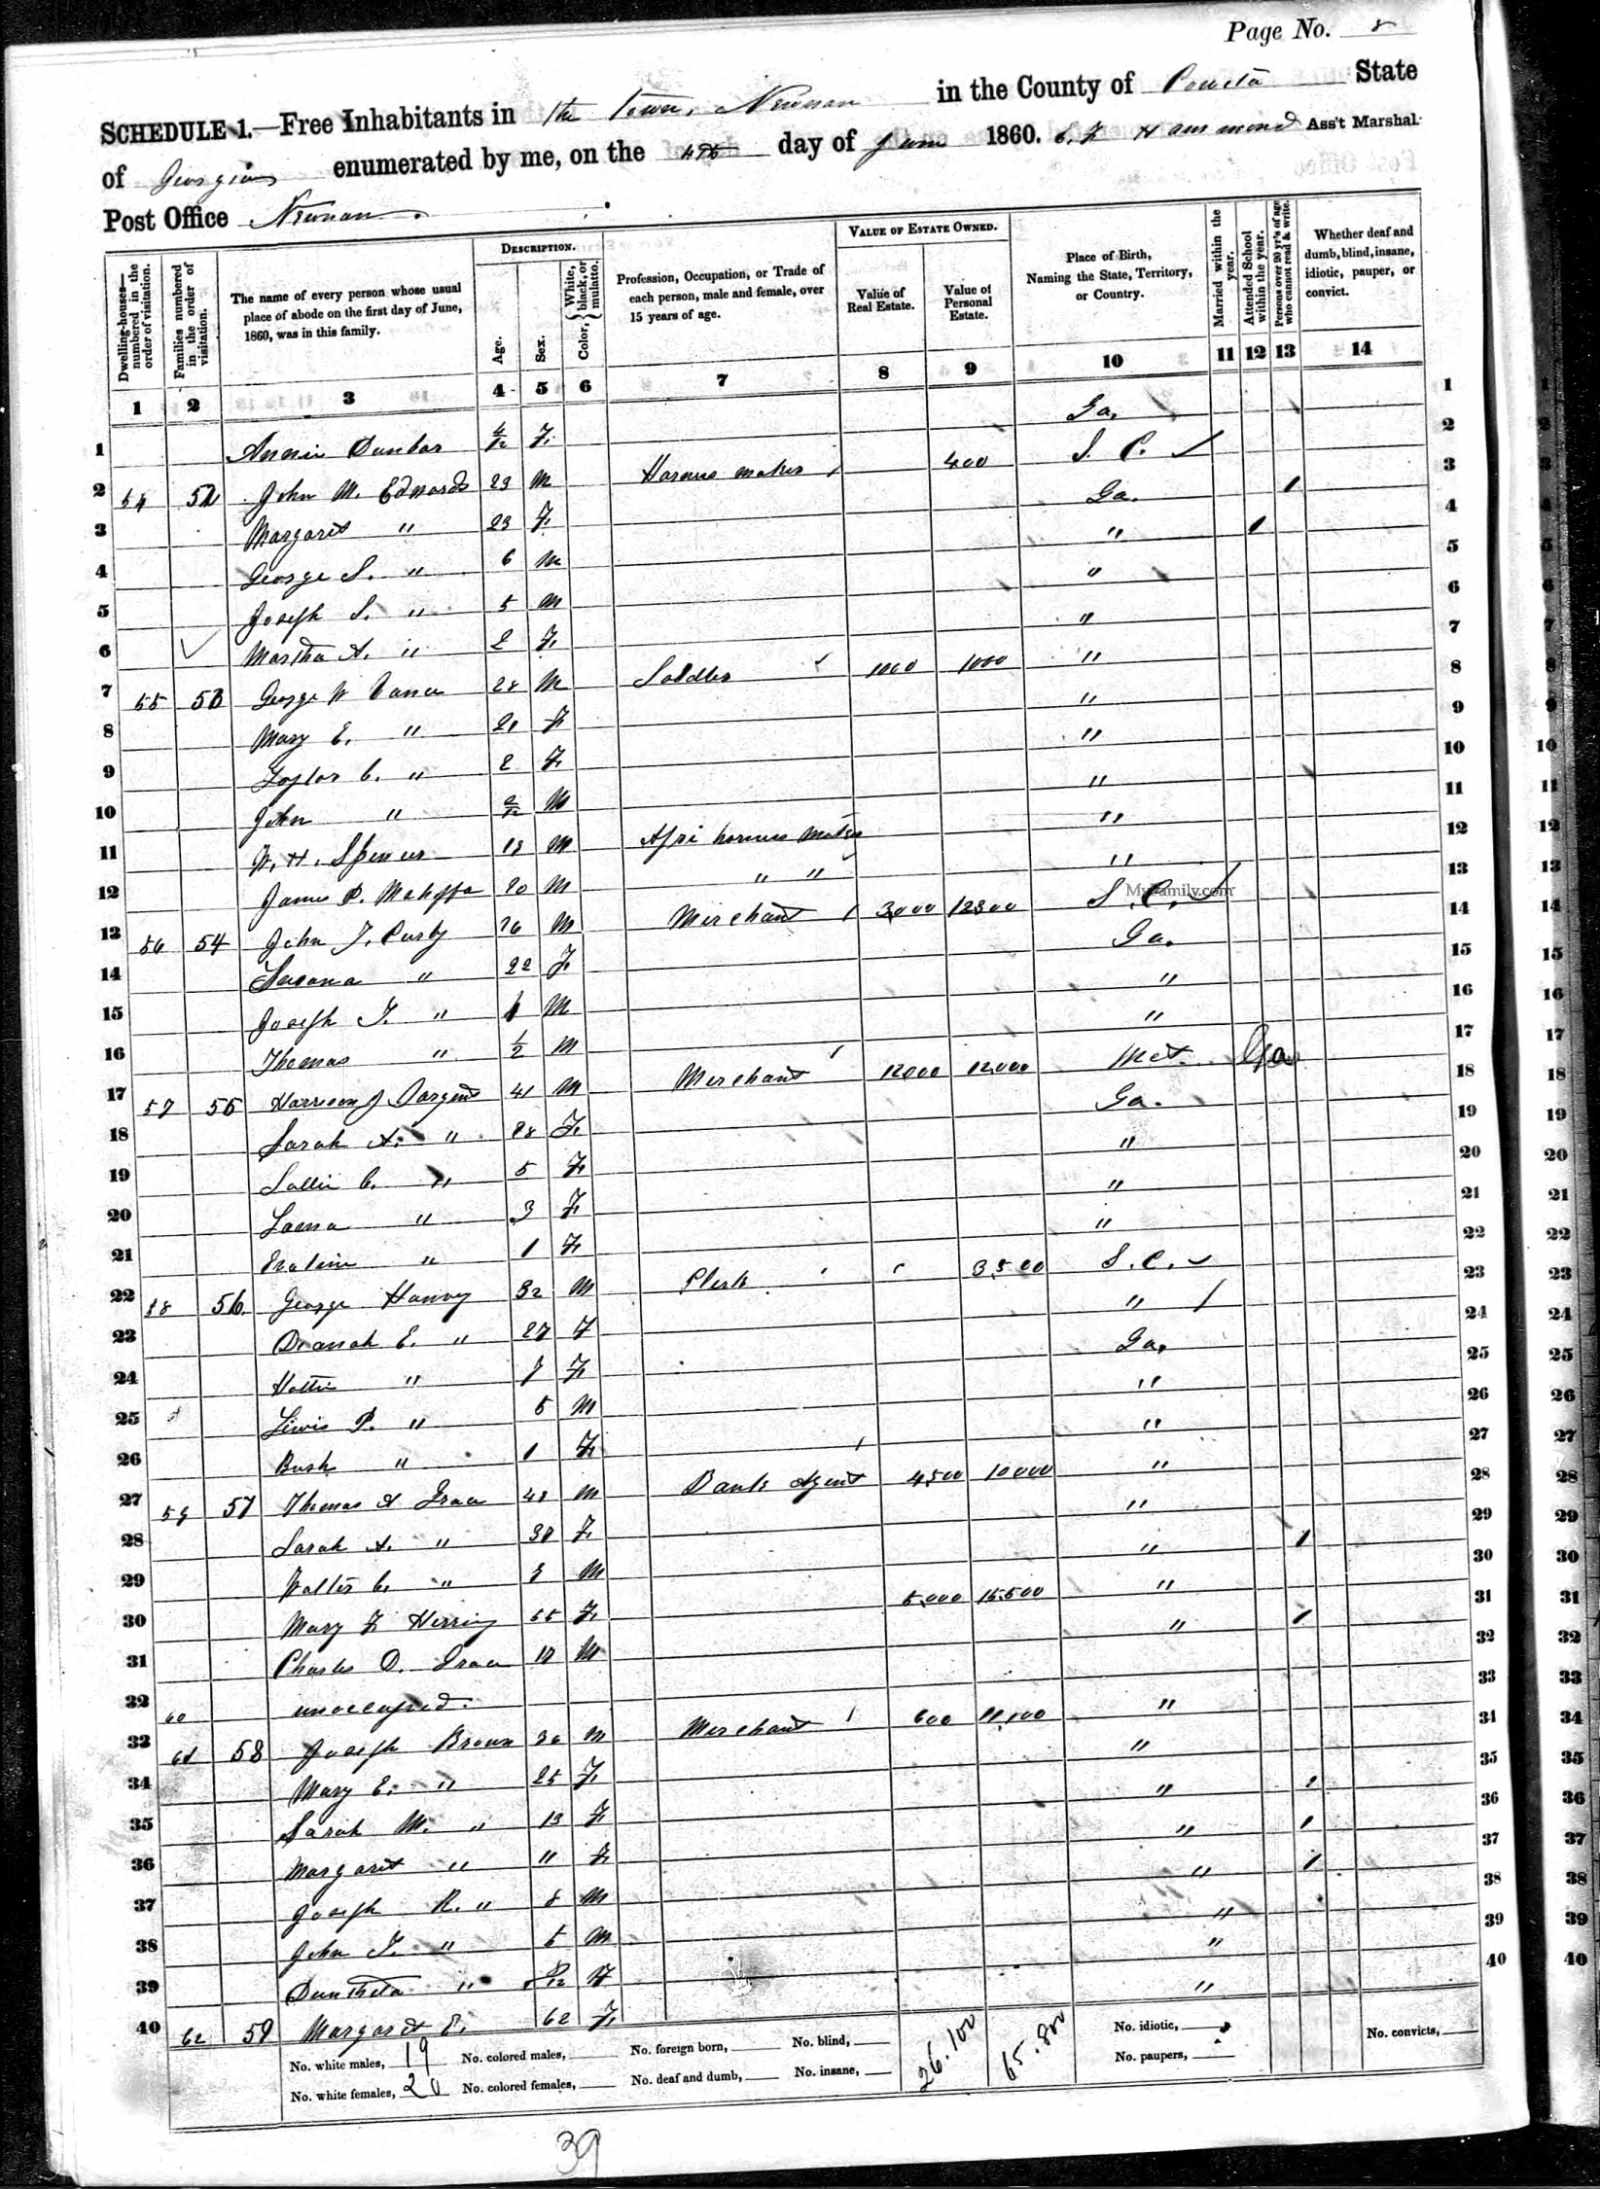 Page No. 8
SCHEDULE 1.—Free Inhabitants in the Town, Newnan in the County of Coweta State
of Georgia enumerated by me, on the 4th day of June 1860. Hammond Ass't Marshal.
Post Office Newnan
Dwelling-houses—numbered in the order of visitation.
Families numbered in the order of visitation.
The name of every person whose usual place of abode on the first day of June, 1860, was in this family.
DESCRIPTION.
Age.
Sex.
Color, { White, black, or mulatto.
Profession, Occupation, or Trade of each person, male and female, over 15 years of age.
VALUE OF ESTATE OWNED.
Value of Real Estate.
Value of Personal Estate.
Place of Birth, Naming the State, Territory, or Country.
Married within the year.
Attended School within the year.
Persons over 20 yr's of age who cannot read & write.
Whether deaf and dumb, blind, insane, idiotic, pauper, or convict.
1 2 3 4 5 6 7 8 9 10 11 12 13 14
1 Annie Dunbar 4/12 F. Ga. 1
2 54 52 John M. Edwards 23 M Harness maker 400 S. C. 2
3 Margaret " 23 F. Ga. 1 3
4 George S. " 6 M " 1 4
5 Joseph S. " 5 M " 5
6 Martha A. " 2 F. " 6
7 55 53 George W 28 M Saddler 1000 1000 " 7
8 Mary E. " 21 F " 8
9 C. " 2 F. " 9
10 John " 2/12 M " 10
11 W. H. Spencer 18 M harness maker " 11
12 James P. 20 M " " " 12
13 56 54 John T. 26 M Merchant 3,000 12800 S. C. 13
14 " 22 F. Ga. 14
15 Joseph T. " 1 M " 15
16 Thomas " 1/2 M " 16
17 57 55 Harrison J Sargent 41 M Merchant 12000 12,000 Ga 17
18 Sarah A. " 28 F. Ga. 18
19 Sallie C. " 5 F " 19
20 " 3 F " 20
21 " 1 F. " 21
22 58 56 George Hanvey 32 M Clerk 3,500 S. C. 22
23 E. " 27 F " 23
24 Hattie " 7 F. Ga. 24
25 Lewis P. " 5 M " 25
26 Bush " 1 F. " 26
27 59 57 Thomas A Grace 48 M Bank Agent 4,500 10000 " 27
28 Sarah A. " 38 F. " 28
29 Walter C. " M " 1 29
30 Mary F. Herring 55 F. 5,000 15,500 " 30
31 Charles D. Grace M " 1 31
32 60 unoccupied. 32
33 61 58 Joseph Brown 36 M Merchant 600 11,100 " 33
34 Mary E. " 25 F. " 34
35 Sarah M. " 13 F. " 1 35
36 Margaret " 11 F. " 1 36
37 Joseph R. " 8 M " 1 37
38 John T. " 5 M " 38
39 " /12 F " 39
40 62 59 Margaret E. 62 F. " 40
No. white males, 19 No. colored males, No. foreign born, No. blind, 26.100 65.800 No. idiotic, No. convicts,
No. white females, 20 No. colored females, No. deaf and dumb, No. insane, No. paupers,
39
MyFamily.com